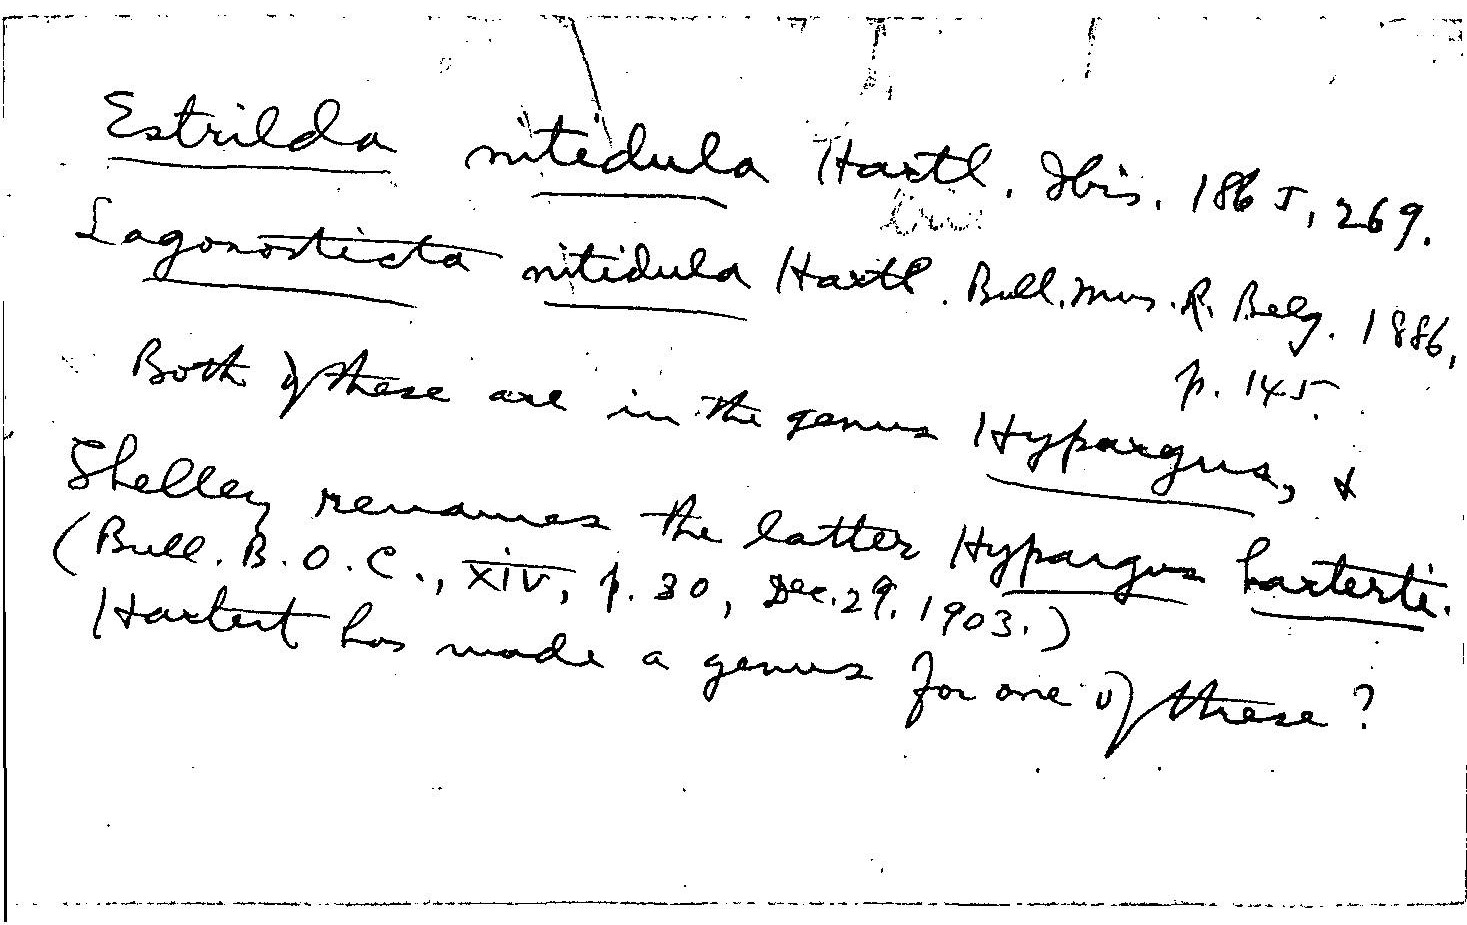 Estrilda nitidula Hartl. Ibis. 1865, 269.
Lagonosticta nitidula Hartl. Bull. Mus. R. Belg. 1886,
p. 145.
Both of these are in the genus Hypargus, &
Shelley renames the latter Hypargus harterti.
(Bull. B.O.C., xiv, p. 30, Dec. 29, 1903.)
Hartert has made a genus for one of these?